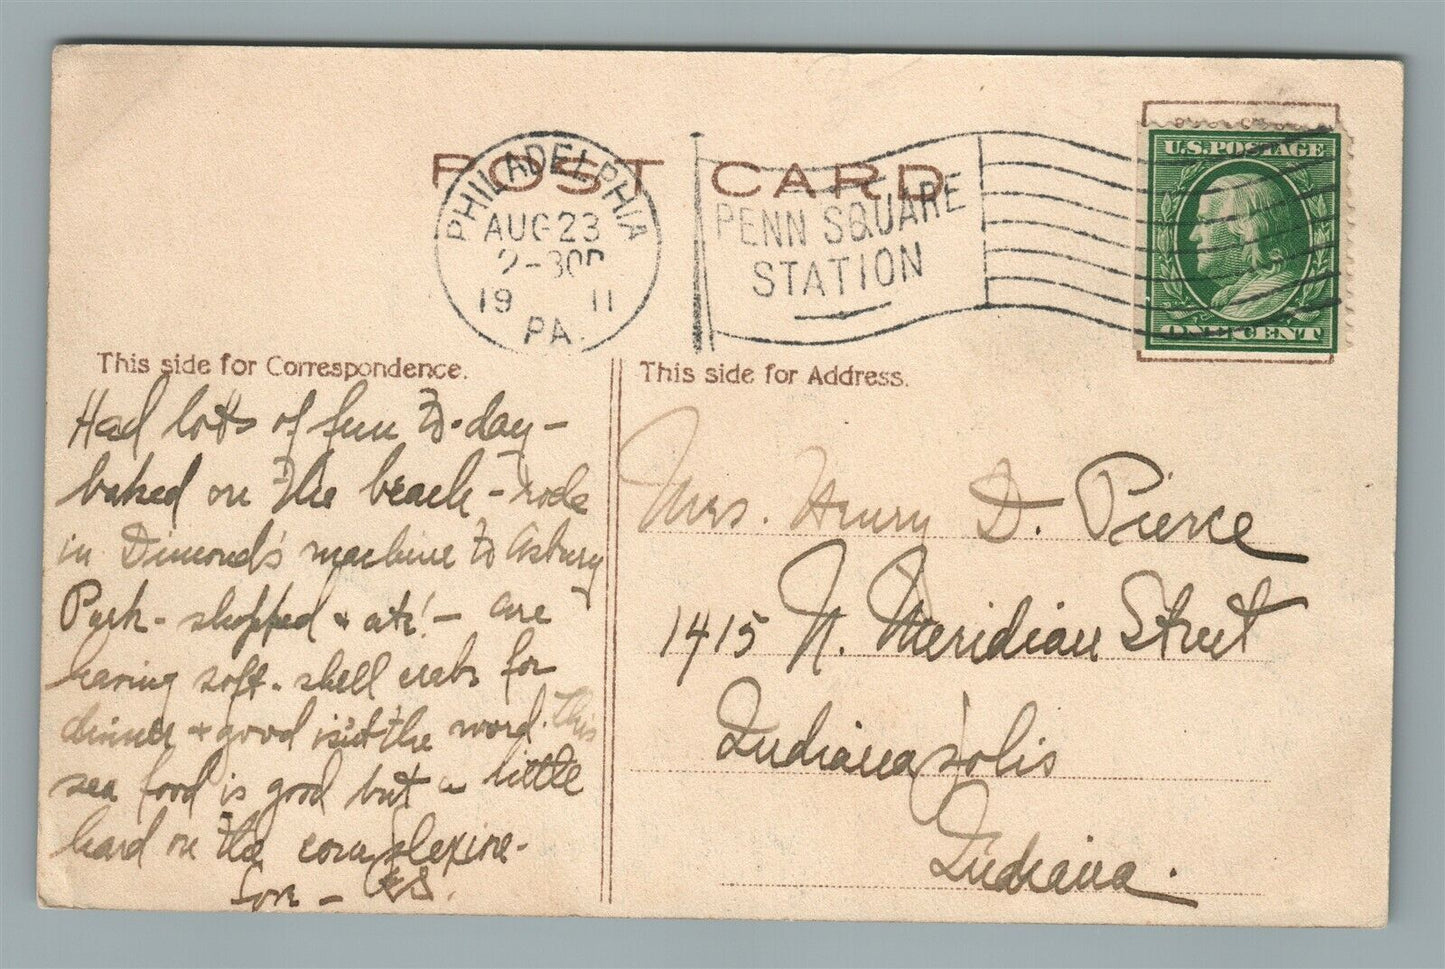 POST CARD
PHILADELPHIA
AUG 23
2-30P
19 11
PA.
PENN SQUARE
STATION
U.S. POSTAGE
ONE CENT
This side for Correspondence.
Had lotts of fun to-day –
baked on the beach – rode
in Dimond's machine to Asbury
Park – shopped & ate! – are
having soft-shell crabs for
dinner & good isn't the word. This
sea food is good but a little
hard on the complexine –
Love –
This side for Address.
Mrs. Henry D. Pierce
1415 N. Meridian Street
Indianapolis
Indiana.